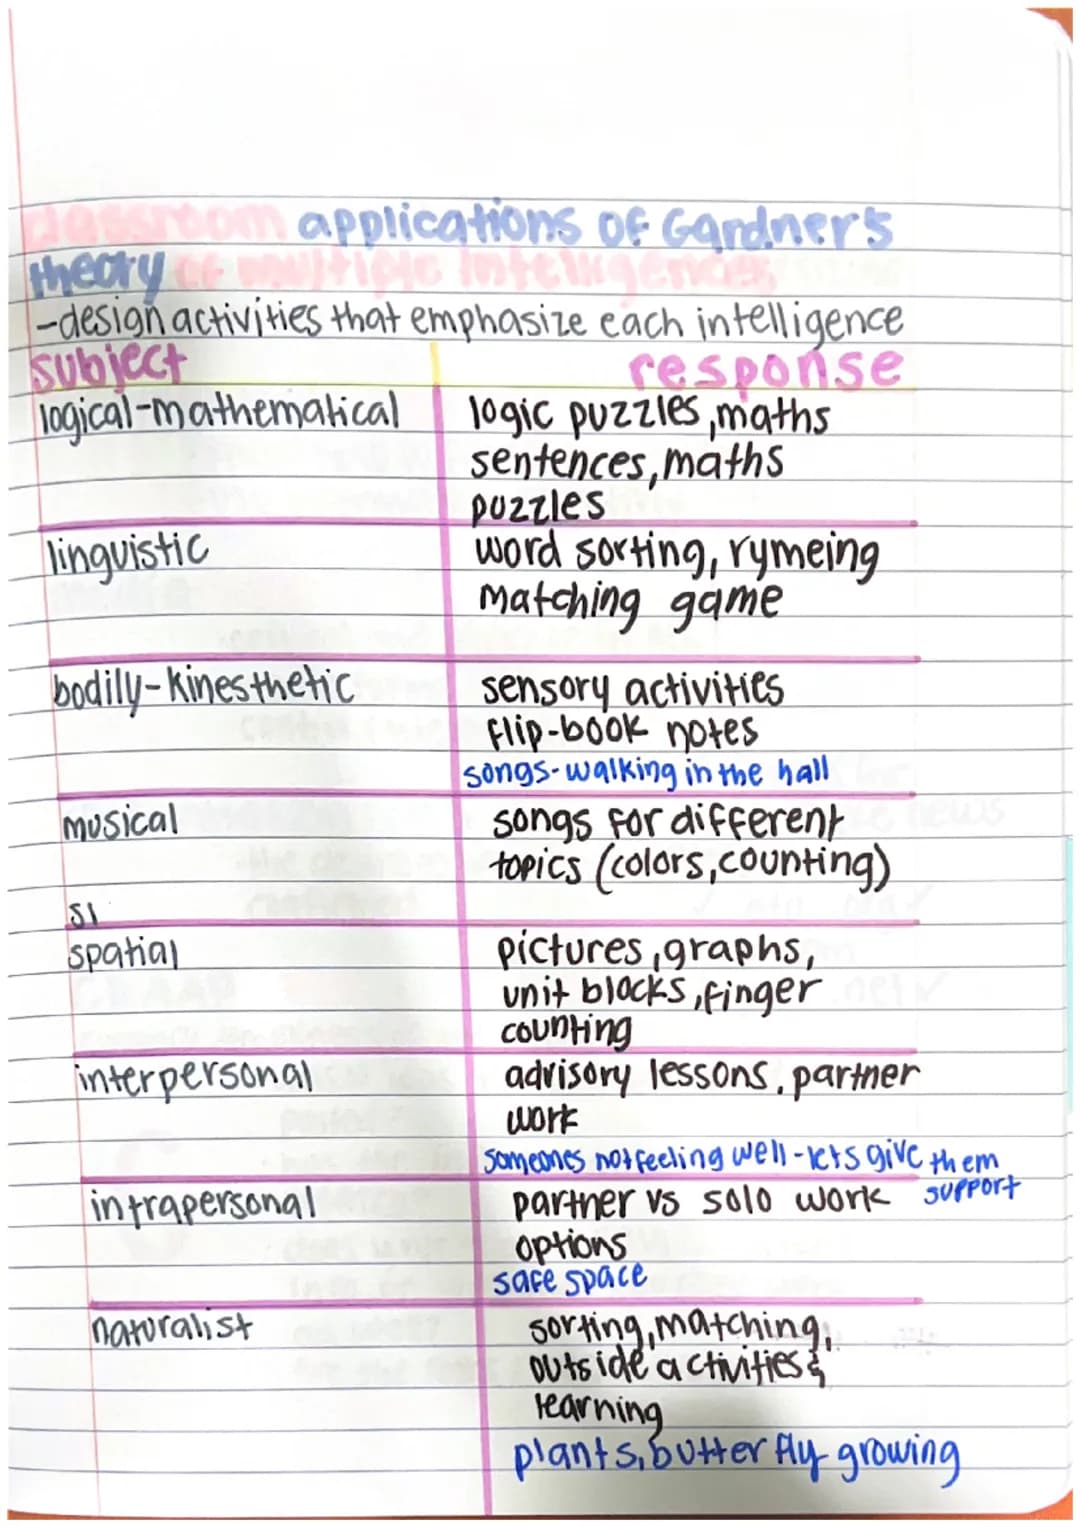 classroom applications of Gardner's
theory of multiple intelligences
-design activities that emphasize each intelligence
subject response
logical-mathematical logic puzzles, maths
sentences, maths
puzzles
linguistic word sorting, rymeing
matching game
bodily-kinesthetic sensory activities
flip-book notes
songs-walking in the hall
musical songs for different
topics (colors, counting)
si
spatial pictures, graphs,
unit blocks, finger
counting
interpersonal advisory lessons, partner
work
someones not feeling well-lets give them
support
intrapersonal partner vs solo work
options
safe space
naturalist sorting, matching,
outside activities &
learning
plants, butterfly growing